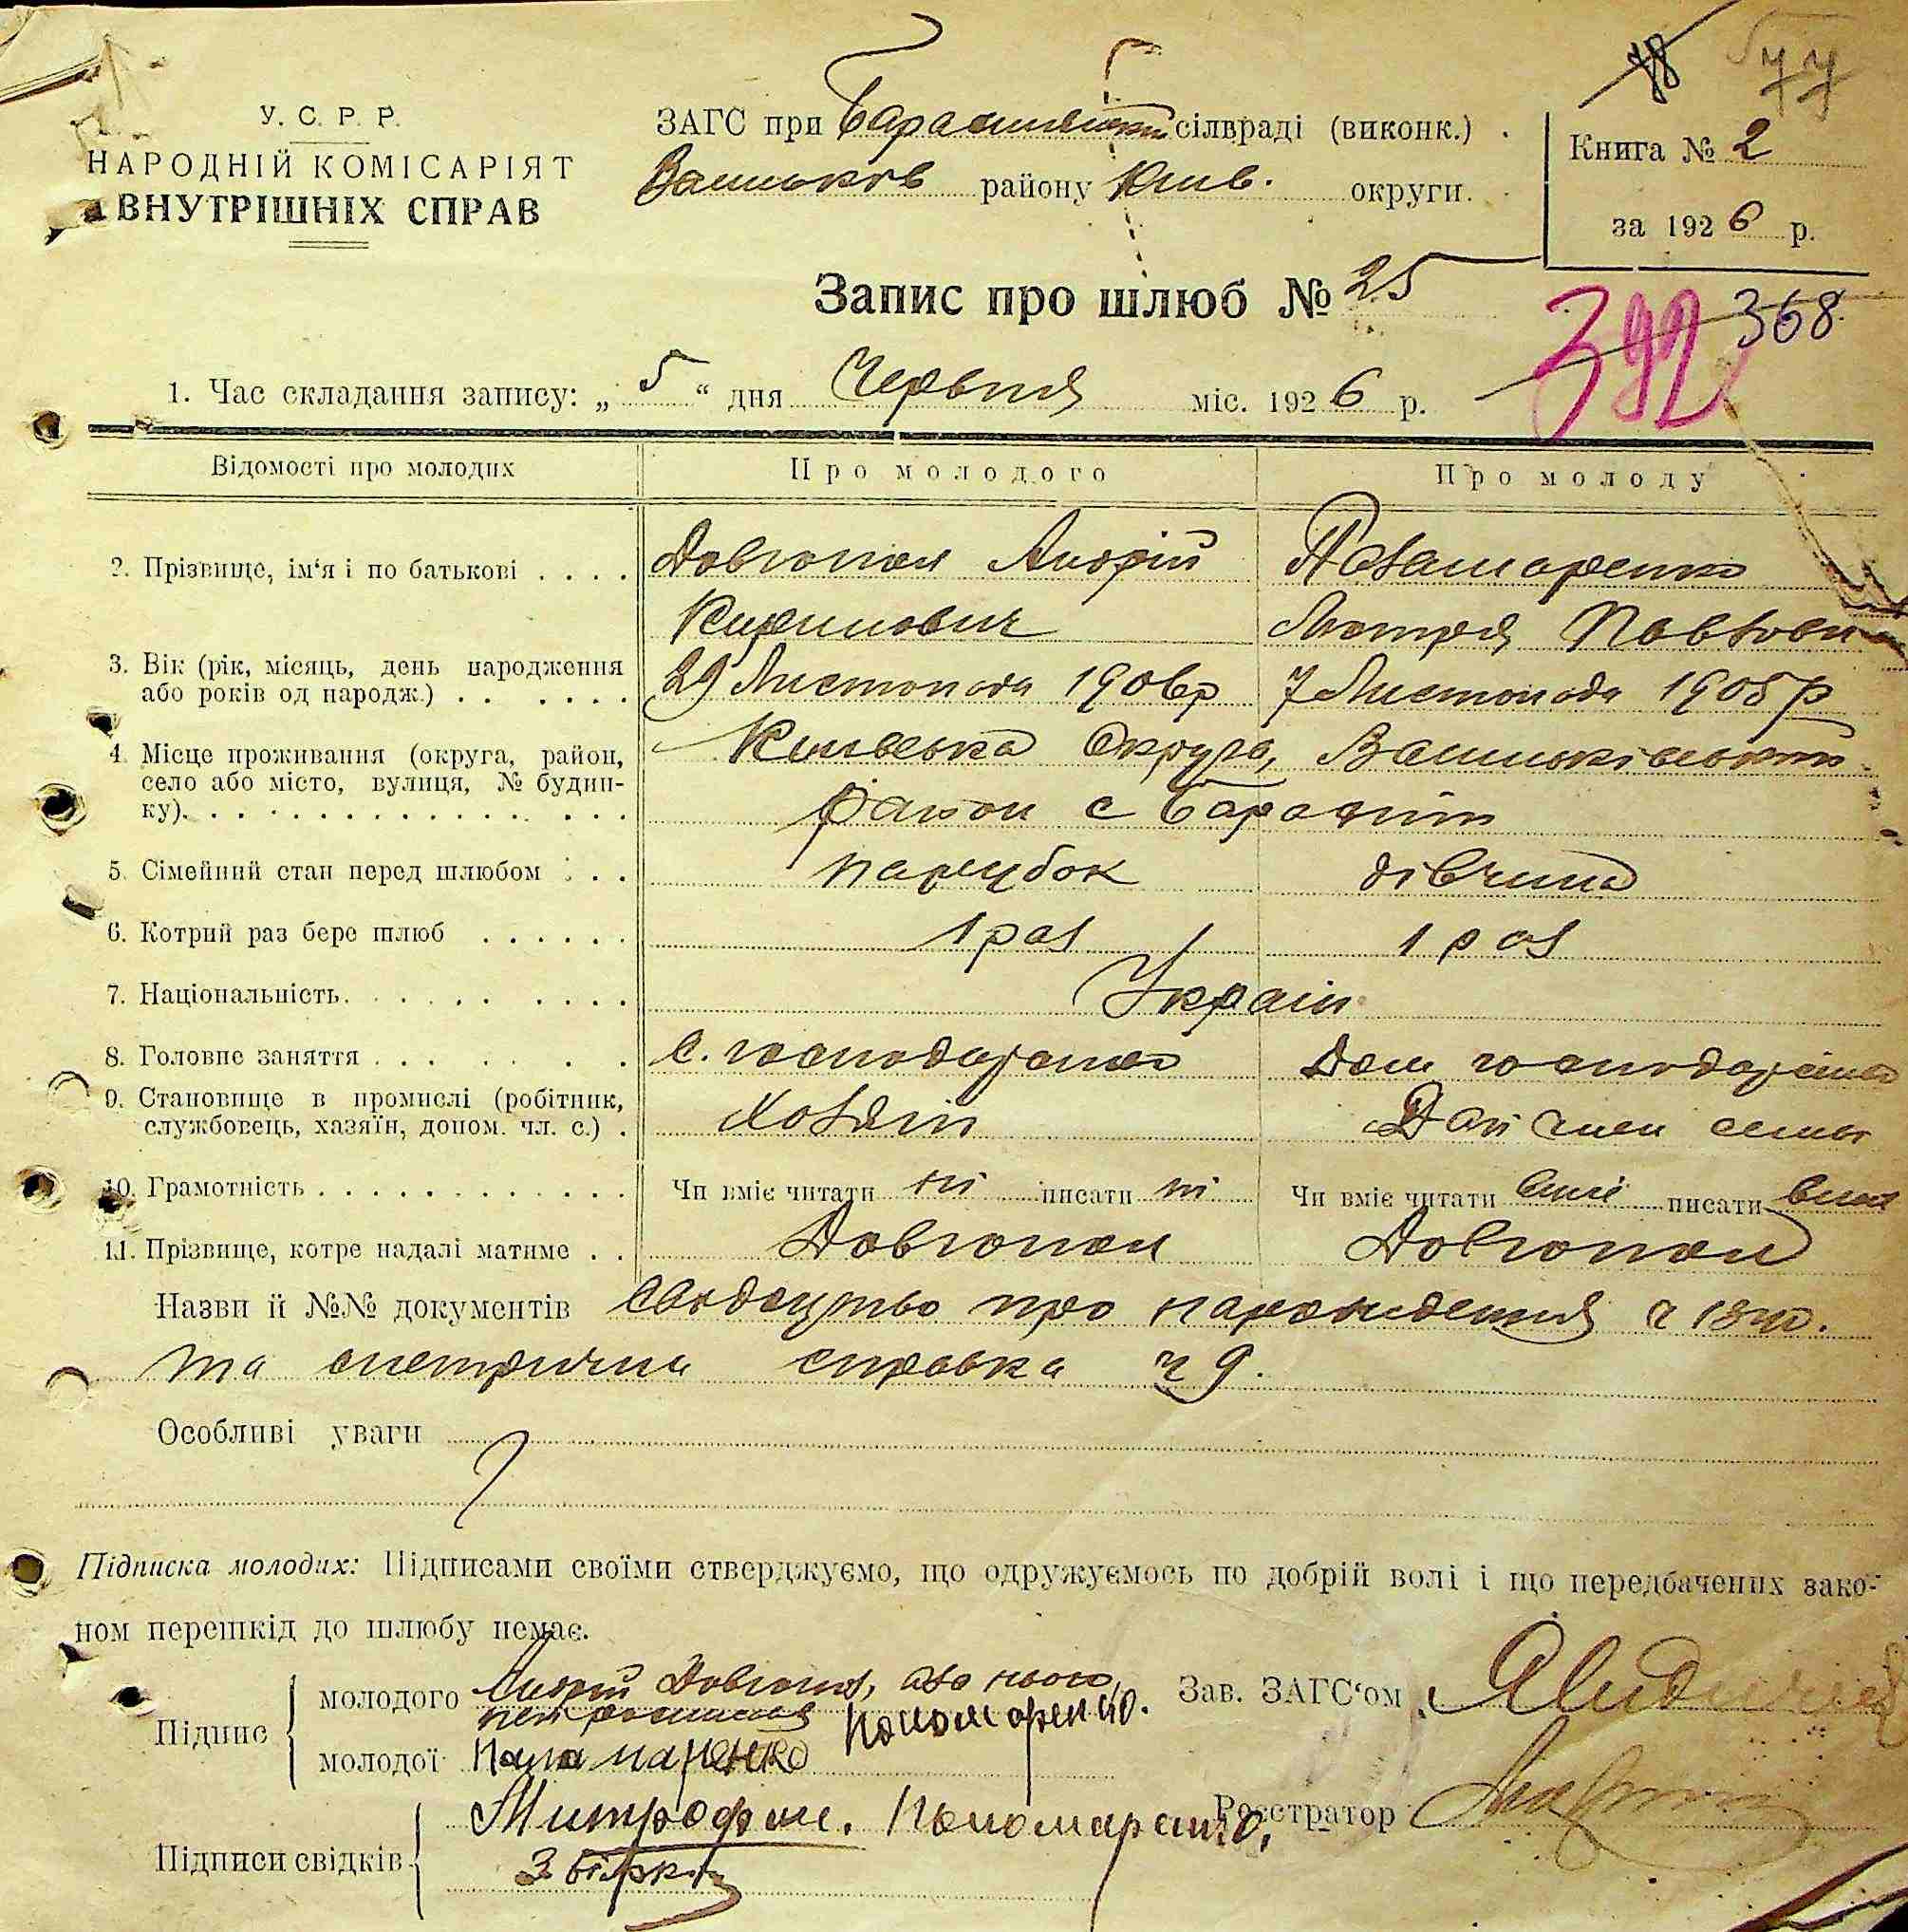 48 77
У. С. Р. Р.
НАРОДНІЙ КОМІСАРІЯТ
ВНУТРІШНІХ СПРАВ
ЗАГС при сілвраді (виконк.)
району Київ. округи.
Книга № 2
за 1926 р.
Запис про шлюб № 25
392 368
1. Час складання запису: „ 5 “ дня Червня міс. 1926 р.
Відомості про молодих Про молодого Про молоду
2. Прізвище, ім‘я і по батькові . . . . Довгопол Андрій
Кирилович Мотря Павловн
3. Вік (рік, місяць, день народження
або років од народж.) . . . . . . 29 Листопада 1906р 7 Листопада 1905р
4. Місце проживання (округа, район,
село або місто, вулиця, № будин-
ку). Київська Округа,
район с
5. Сімейний стан перед шлюбом . . . парубок дівчина
6. Котрий раз бере шлюб . . . . . . 1 раз 1 раз
7. Національність. Україн
8. Головне заняття . . . С. господарство Дом господарство
9. Становище в промислі (робітник,
службовець, хазяїн, допом. чл. с.) . Хозяїн член семьи
10. Грамотність . . . Чи вміє читати ні писати ні Чи вміє читати вміє писати вміє
11. Прізвище, котре надалі матиме . . Довгопол Довгопол
Назви й №№ документів про народження
та метрична справка ч 9.
Особливі уваги
Підписка молодих: Підписами своїми стверджуємо, що одружуємось по добрій волі і що передбачених зако-
ном перешкід до шлюбу немає.
Підпис
молодого Андрій Довгопол, а за нього
неграмотного Пономаренко.
молодої
Зав. ЗАГС‘ом
Реєстратор
Підписи свідків
Митрофан. Пономаренко.